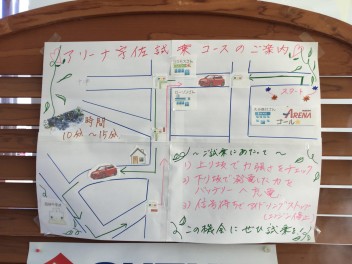 アリーナ宇佐試乗コースのご案内
スタート
ARENA
ゴール
時間
10分~15分
~ご試乗にあたって~
1) 上り坂で力強さをチェック
2) 下り坂で発電した力を
バッテリーへ充電
3) 信号待ちでアイドリングストップ
(エンジン停止)
この機会にぜひ試乗を!